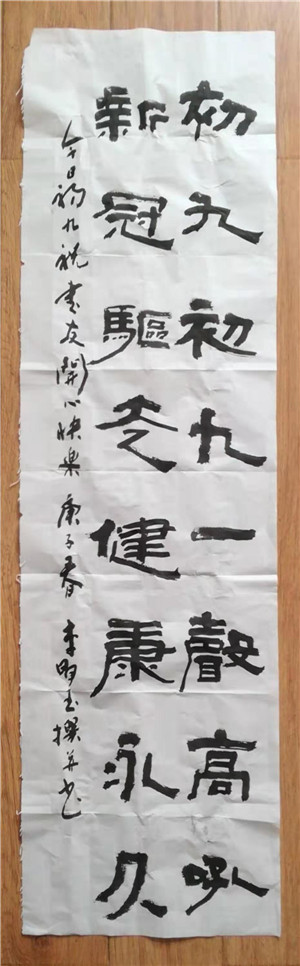 初九初九一聲高吼
新冠驅走健康永久
今日初九祝書友開心快樂 庚子春 李明玉撰并书